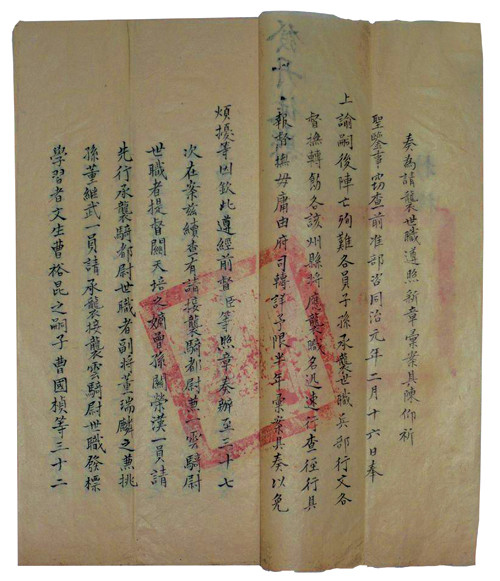 奏為請襲世職遵照新章彙案具陳仰祈
聖鑒事竊查前准部咨同治元年二月十六日奉
上諭嗣後陣亡殉難各員子孫承襲世職兵部行文各
督撫轉飭各該州縣將應襲職名迅速行查徑行具
報督撫毋庸由府司轉詳予限半年彙案具奏以免
煩擾等因欽此遵經前督臣等照章奏辦至三十七
次在案茲續查有請接襲騎都尉兼一雲騎尉
世職者提督關天培之嫡曾孫關榮漢一員請
先行承襲騎都尉世職者副將董瑞麟之兼挑
孫董繼武一員請承襲接襲雲騎尉世職發標
學習者文生曹裕昆之嗣子曹國楨等三十二